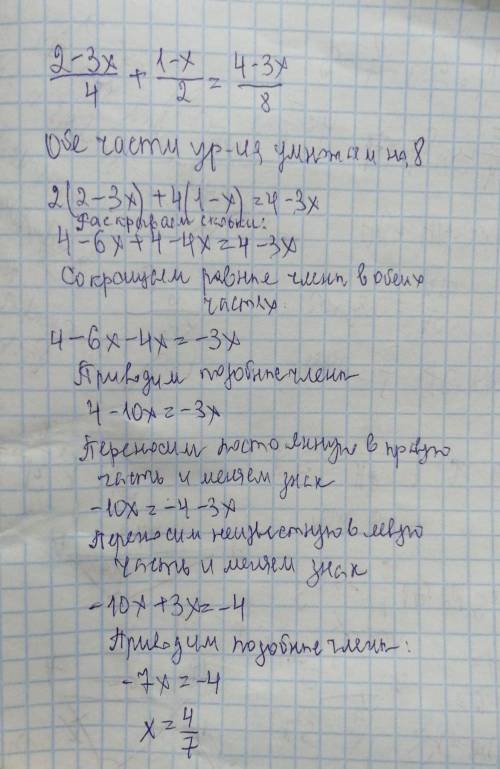 (2-3x)/4 + (1-x)/2 = (4-3x)/8
Обе части ур-ия умножаем на 8
2(2-3x)+4(1-x)=4-3x
Раскрываем скобки:
4-6x+4-4x=4-3x
Сокращаем равные члены в обеих
частях.
4-6x-4x=-3x
Приводим подобные члены
4-10x=-3x
Переносим постоянную в правую
часть и меняем знак
-10x=-4-3x
Переносим неизвестную в левую
часть и меняем знак
-10x+3x=-4
Приводим подобные члены:
-7x=-4
x=4/7